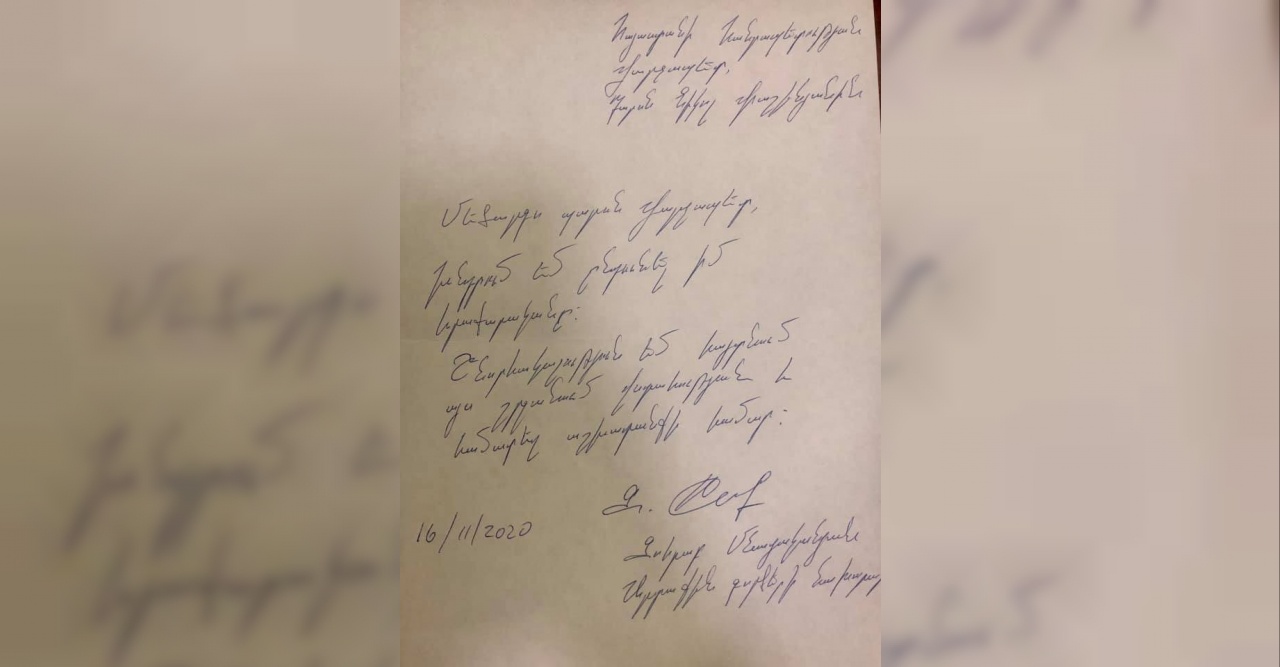 Հայաստանի Հանրապետության
վարչապետ,
Պարոն Նիկոլ Փաշինյանին
Մեծարգո պարոն վարչապետ,
խնդրում եմ ընդունել իմ
հրաժարականը:
Շնորհակալություն եմ հայտնում
այս շրջանում վստահության և
համատեղ աշխատանքի համար:
Զ. 
16/11/2020
Զոհրաբ Մնացականյան
Արտաքին գործերի նախարար